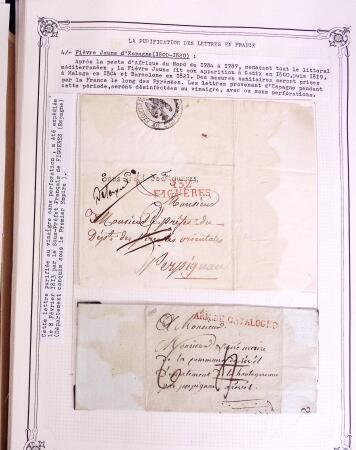 LA PURIFICATION DES LETTRES EN FRANCE
4/- Fièvre Jaune d'Espagne(1800-1820) :
Après la peste d'Afrique du Nord de 1784 à 1787, menaçant tout le littoral
méditerranéen , la Fièvre Jaune fit son apparition à Cadix en 1800, puis 1819,
à Malaga en 1804 et Barcelone en 1821. Des mesures sanitaires seront prises
par la France le long des Pyrénées. Les lettres provenant d'Espagne pendant
cette période, seront désinfectées au vinaigre, avec ou sans perforations.
Cette lettre purifiée au vinaigre sans perforation ; a été expédiée
le 8 Février 1813 par le Sous-Préfet Français de FIGUERES (Espagne)
(Département conquis sous le Premier Empire ).
Sous-Préfet de Figueres,
FIGUERES
Monsieur
Monsieur le préfet du
Dépt. des orientales
Perpignan
ARM. DE CATALOGNE
A Monsieur
Monsieur maire
de la commune
département de la
par perpignan